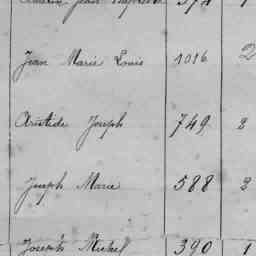 Jean 374 1
Jean Marie Louis 1016 2
Aristide Joseph 749 2
Joseph Marie 588 2
Joseph Michel 390 1